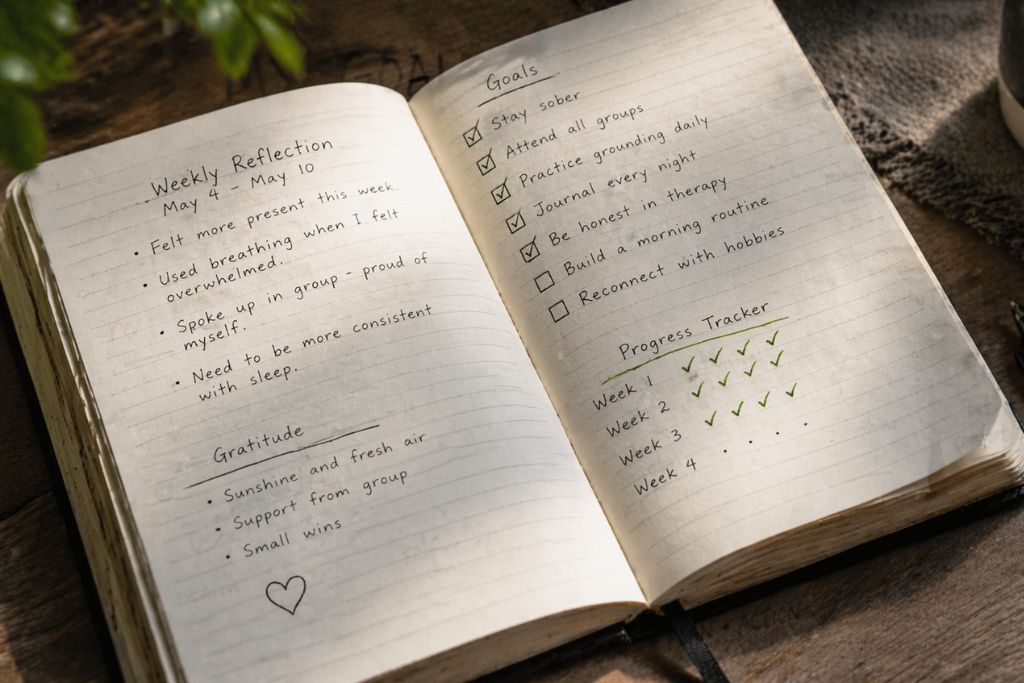 Weekly Reflection
May 4 - May 10
• Felt more present this week.
• Used breathing when I felt
overwhelmed.
• Spoke up in group - proud of
myself.
• Need to be more consistent
with sleep.
Gratitude
• Sunshine and fresh air
• Support from group
• Small wins
♡
Goals
☑ Stay sober
☑ Attend all groups
☑ Practice grounding daily
☑ Journal every night
☑ Be honest in therapy
☐ Build a morning routine
☐ Reconnect with hobbies
Progress Tracker
Week 1 ✓ ✓ ✓ ✓
Week 2 ✓ ✓ ✓ ✓
Week 3 ✓ ✓ ✓ ✓
Week 4 . . . .